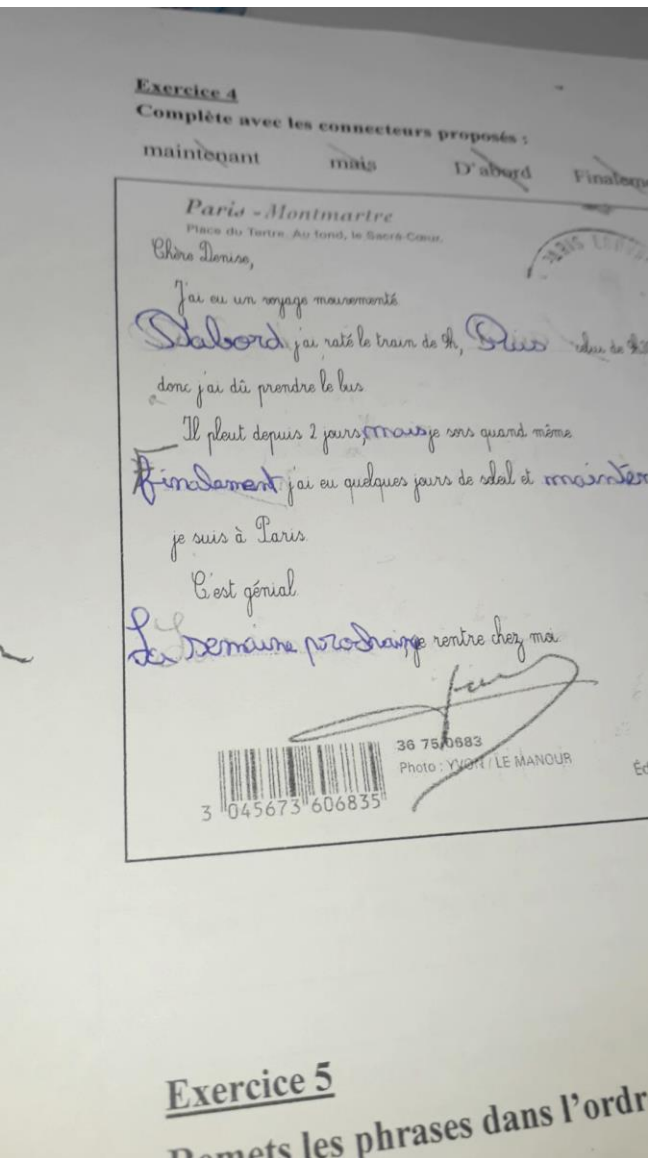 Exercice 4
Complète avec les connecteurs proposés :
maintenant mais D'abord Finaleme
Paris - Montmartre
Place du Tertre. Au fond, le Sacré-Cœur.
Chère Denise,
J'ai eu un voyage mouvementé
D'abord j'ai raté le train de 9h, Puis celui de
donc j'ai dû prendre le bus
Il pleut depuis 2 jours, mais je sors quand même
Finalement j'ai eu quelques jours de soleil et mainten
je suis à Paris.
C'est génial
La semaine prochaine je rentre chez moi
36 75/0683
Photo : YVON / LE MANOUR
Éd
3 045673 606835
Exercice 5
Remets les phrases dans l'ordr